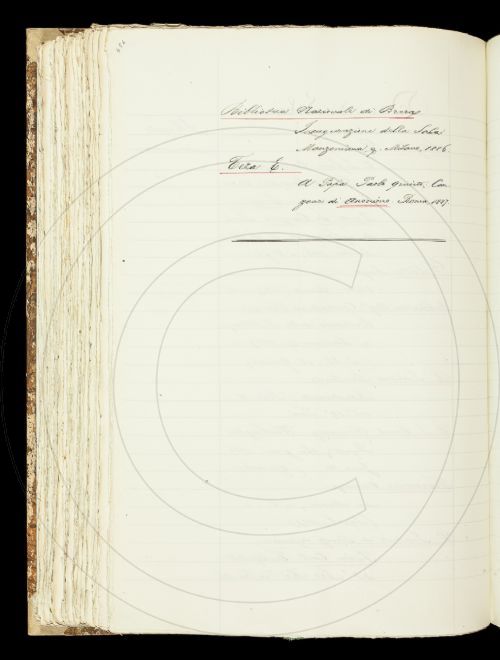 Biblioteca Nazionale di Brera
Inaugurazione della Sala
Manzoniana. Milano, 1886.
Teza E.
A Papa Paolo quinto. Can
zone di Anonimo. Roma, 1887.